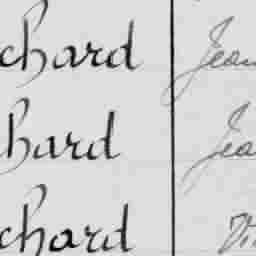 chard Jean
hard Jea
chard